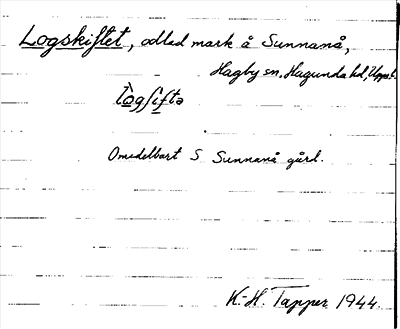 Logskiftet, odlad mark å Sunnanå,
Hagby sn, Hagunda hd, Uppsl.
Omedelbart S Sunnanå gård.
K.-H. Tapper 1944.